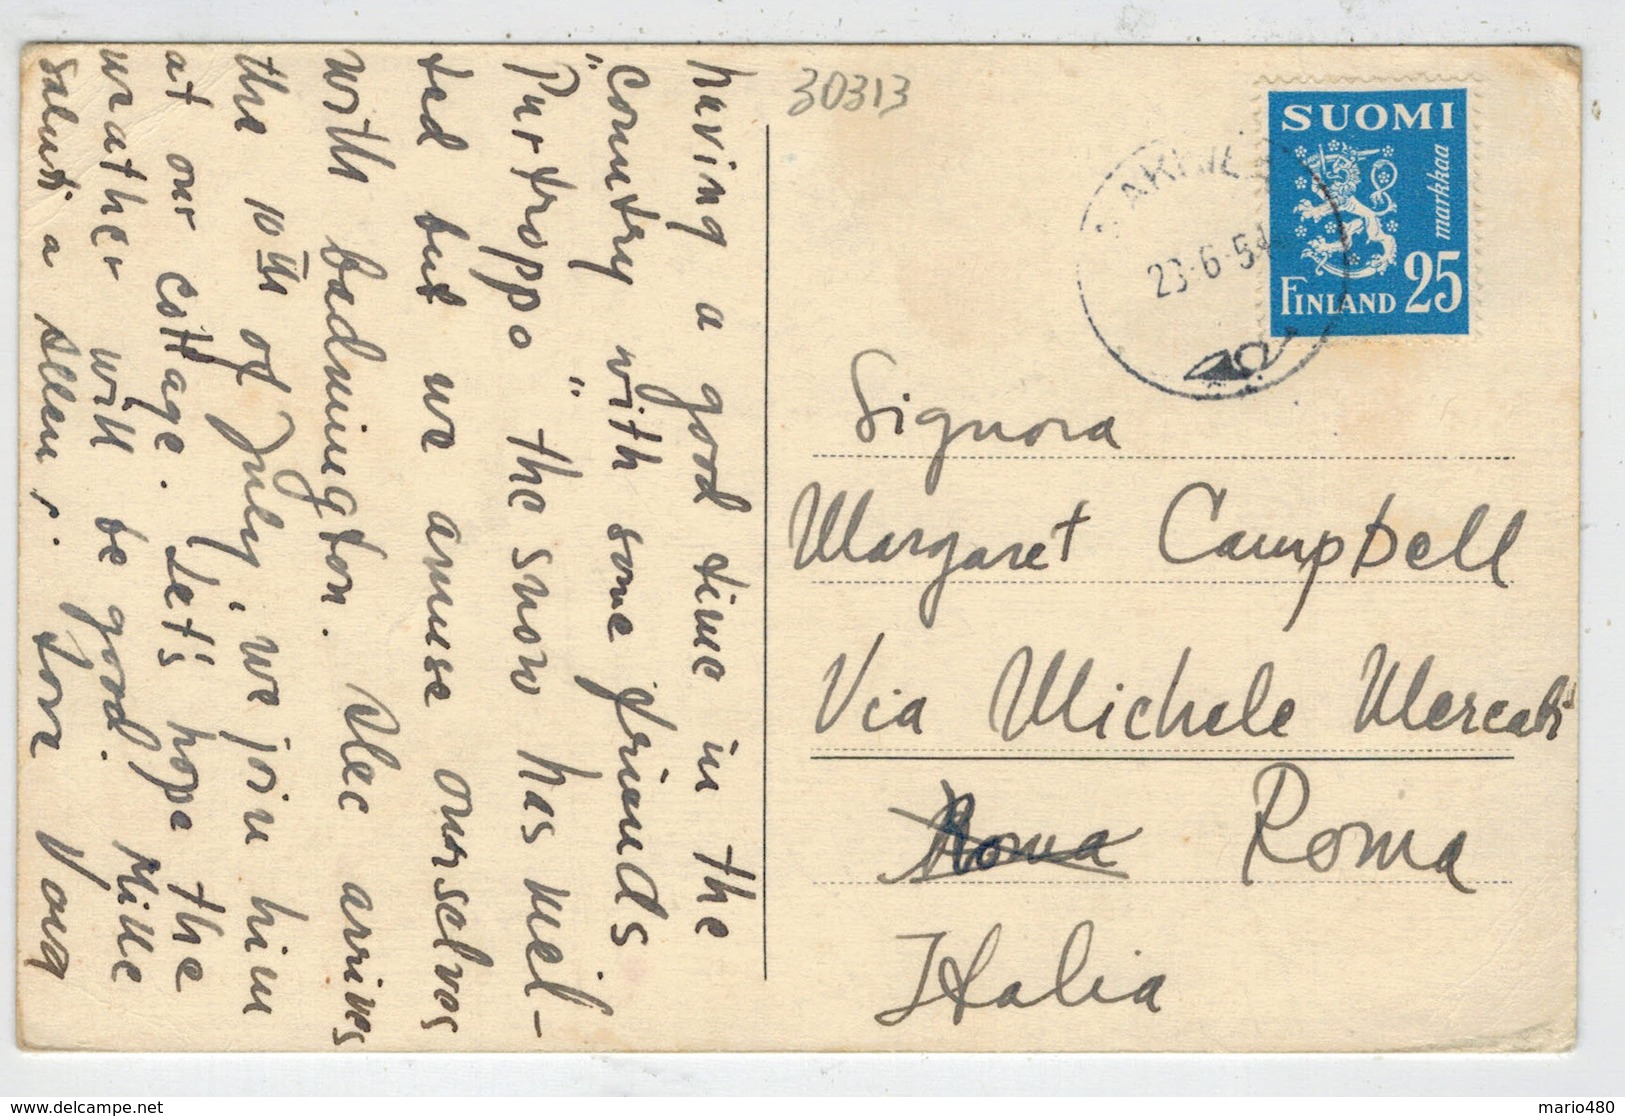 having a good time in the
country with some friends
"Purtroppo" the snow has mel-
ted but we amuse ourselves
with badmington. Alec arrives
the 10th of July, we join him
at our cottage. Let's hope the
weather will be good. Mille
saluti a
30313
SUOMI
markkaa
FINLAND 25
23.6.54
Signora
Margaret Campbell
Via Michele Mercati
Roma Roma
Italia
www.delcampe.net
mario480